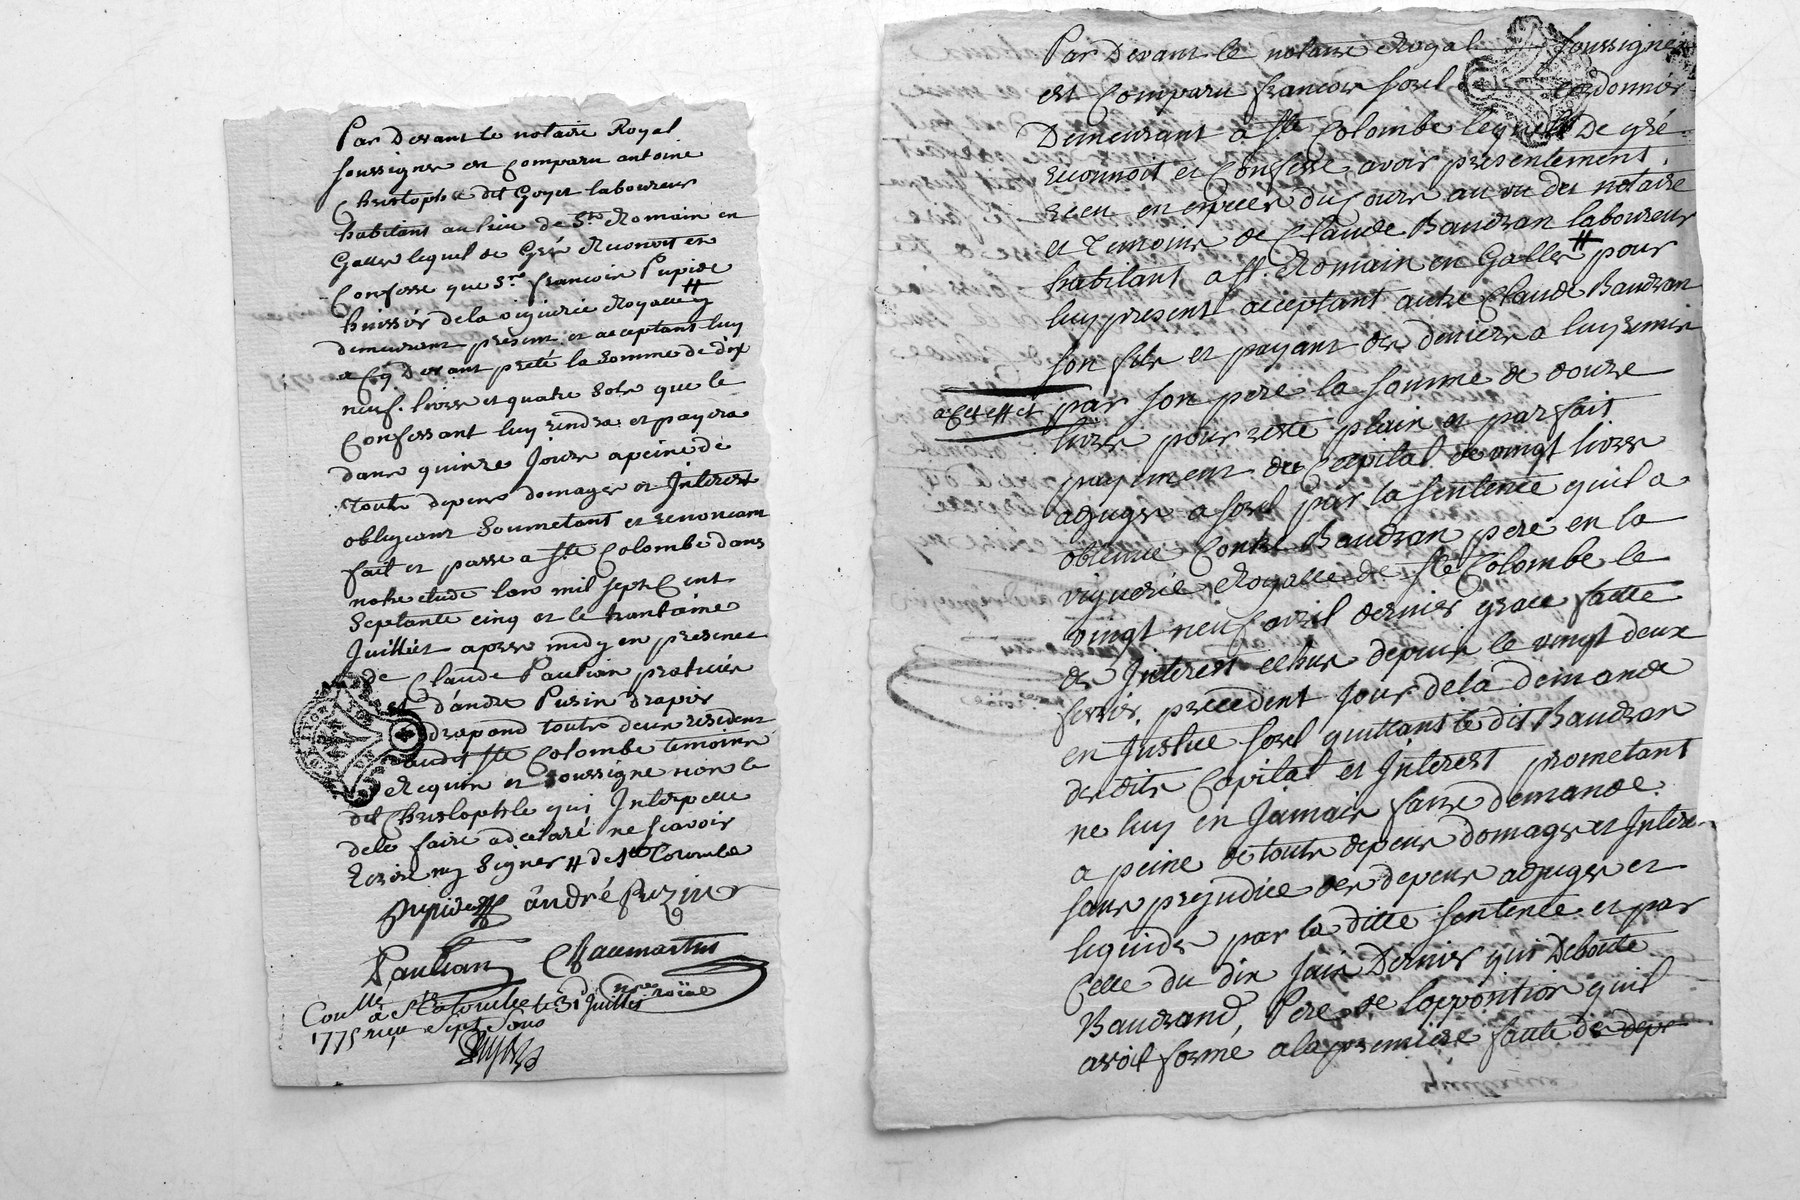 Par Devant le notaire Royal
soussigne est Comparu antoine
Christophle dit Goyet laboureur
habitant au lieu de St. Romain en
Galles lequel de Gré Reconoit et
Confesse que Sr. francois Pupide
huissier de la viguerie Royalle #
demeurant present et acceptant luy
a Cy Devant preté la somme de dix
neuf livres et quatre sols que le
Confessant luy rendra et payera
dans quinze Jours a peine de
touts depens domages et Interest
obligeant Soumetant et renoncant
fait et passé a Ste Colombe dans
notre etude l'an mil sept Cent
Septante cinq et le trantaine
Juillet apres midy en presence
de Claude Paulian praticien
et d'andre Puzin drapier
drapand touts deux residents
audit Ste Colombe temoins
Requis et soussigne non le
dit Christophle qui Interpelle
de le faire a declaré ne scavoir
Ecrire ny Signer # de Ste Colombe
andré Puzin
Paulian
nre roïal
Conllé a Ste Colombe le 31 Juillet
1775 reçu Sept Sous
Par Devant le notaire Royal soussigné
est Comparu francois sorel cordonnier
Demeurant a Ste Colombe lequel De gré
reconnoit et Confesse avoir presentement
receu en especes du jours au vu du notaire
et temoins de Claude Baudran laboureur
habitant a St. Romain en Galles # pour
luy present acceptant autre Claude Baudran
son fils et payant des deniers a luy remis
a Cet effet
par son pere la somme de douze
livres pour reste plain et parfait
payement du Capital de vingt livres
adjugés a sorel par la sentence quil a
obtenue Contre Baudran pere en la
viguerie Royalle de Ste Colombe le
vingt neuf avril dernier grace faitte
des Interest echus depuis le vingt deux
fevrier precedent jour de la demande
en Justice sorel quittant le dit Baudran
des dits Capital et Interest prometant
ne luy en Jamais faire demande
a peine de touts depens domages et Intere
sans prejudice des depens adjugés et
liquidés par la ditte sentence et par
Celle du dix juin Dernier qui Deboute
Baudrand Pere de lopposition quil
avoit formé a la premiere faute de depe